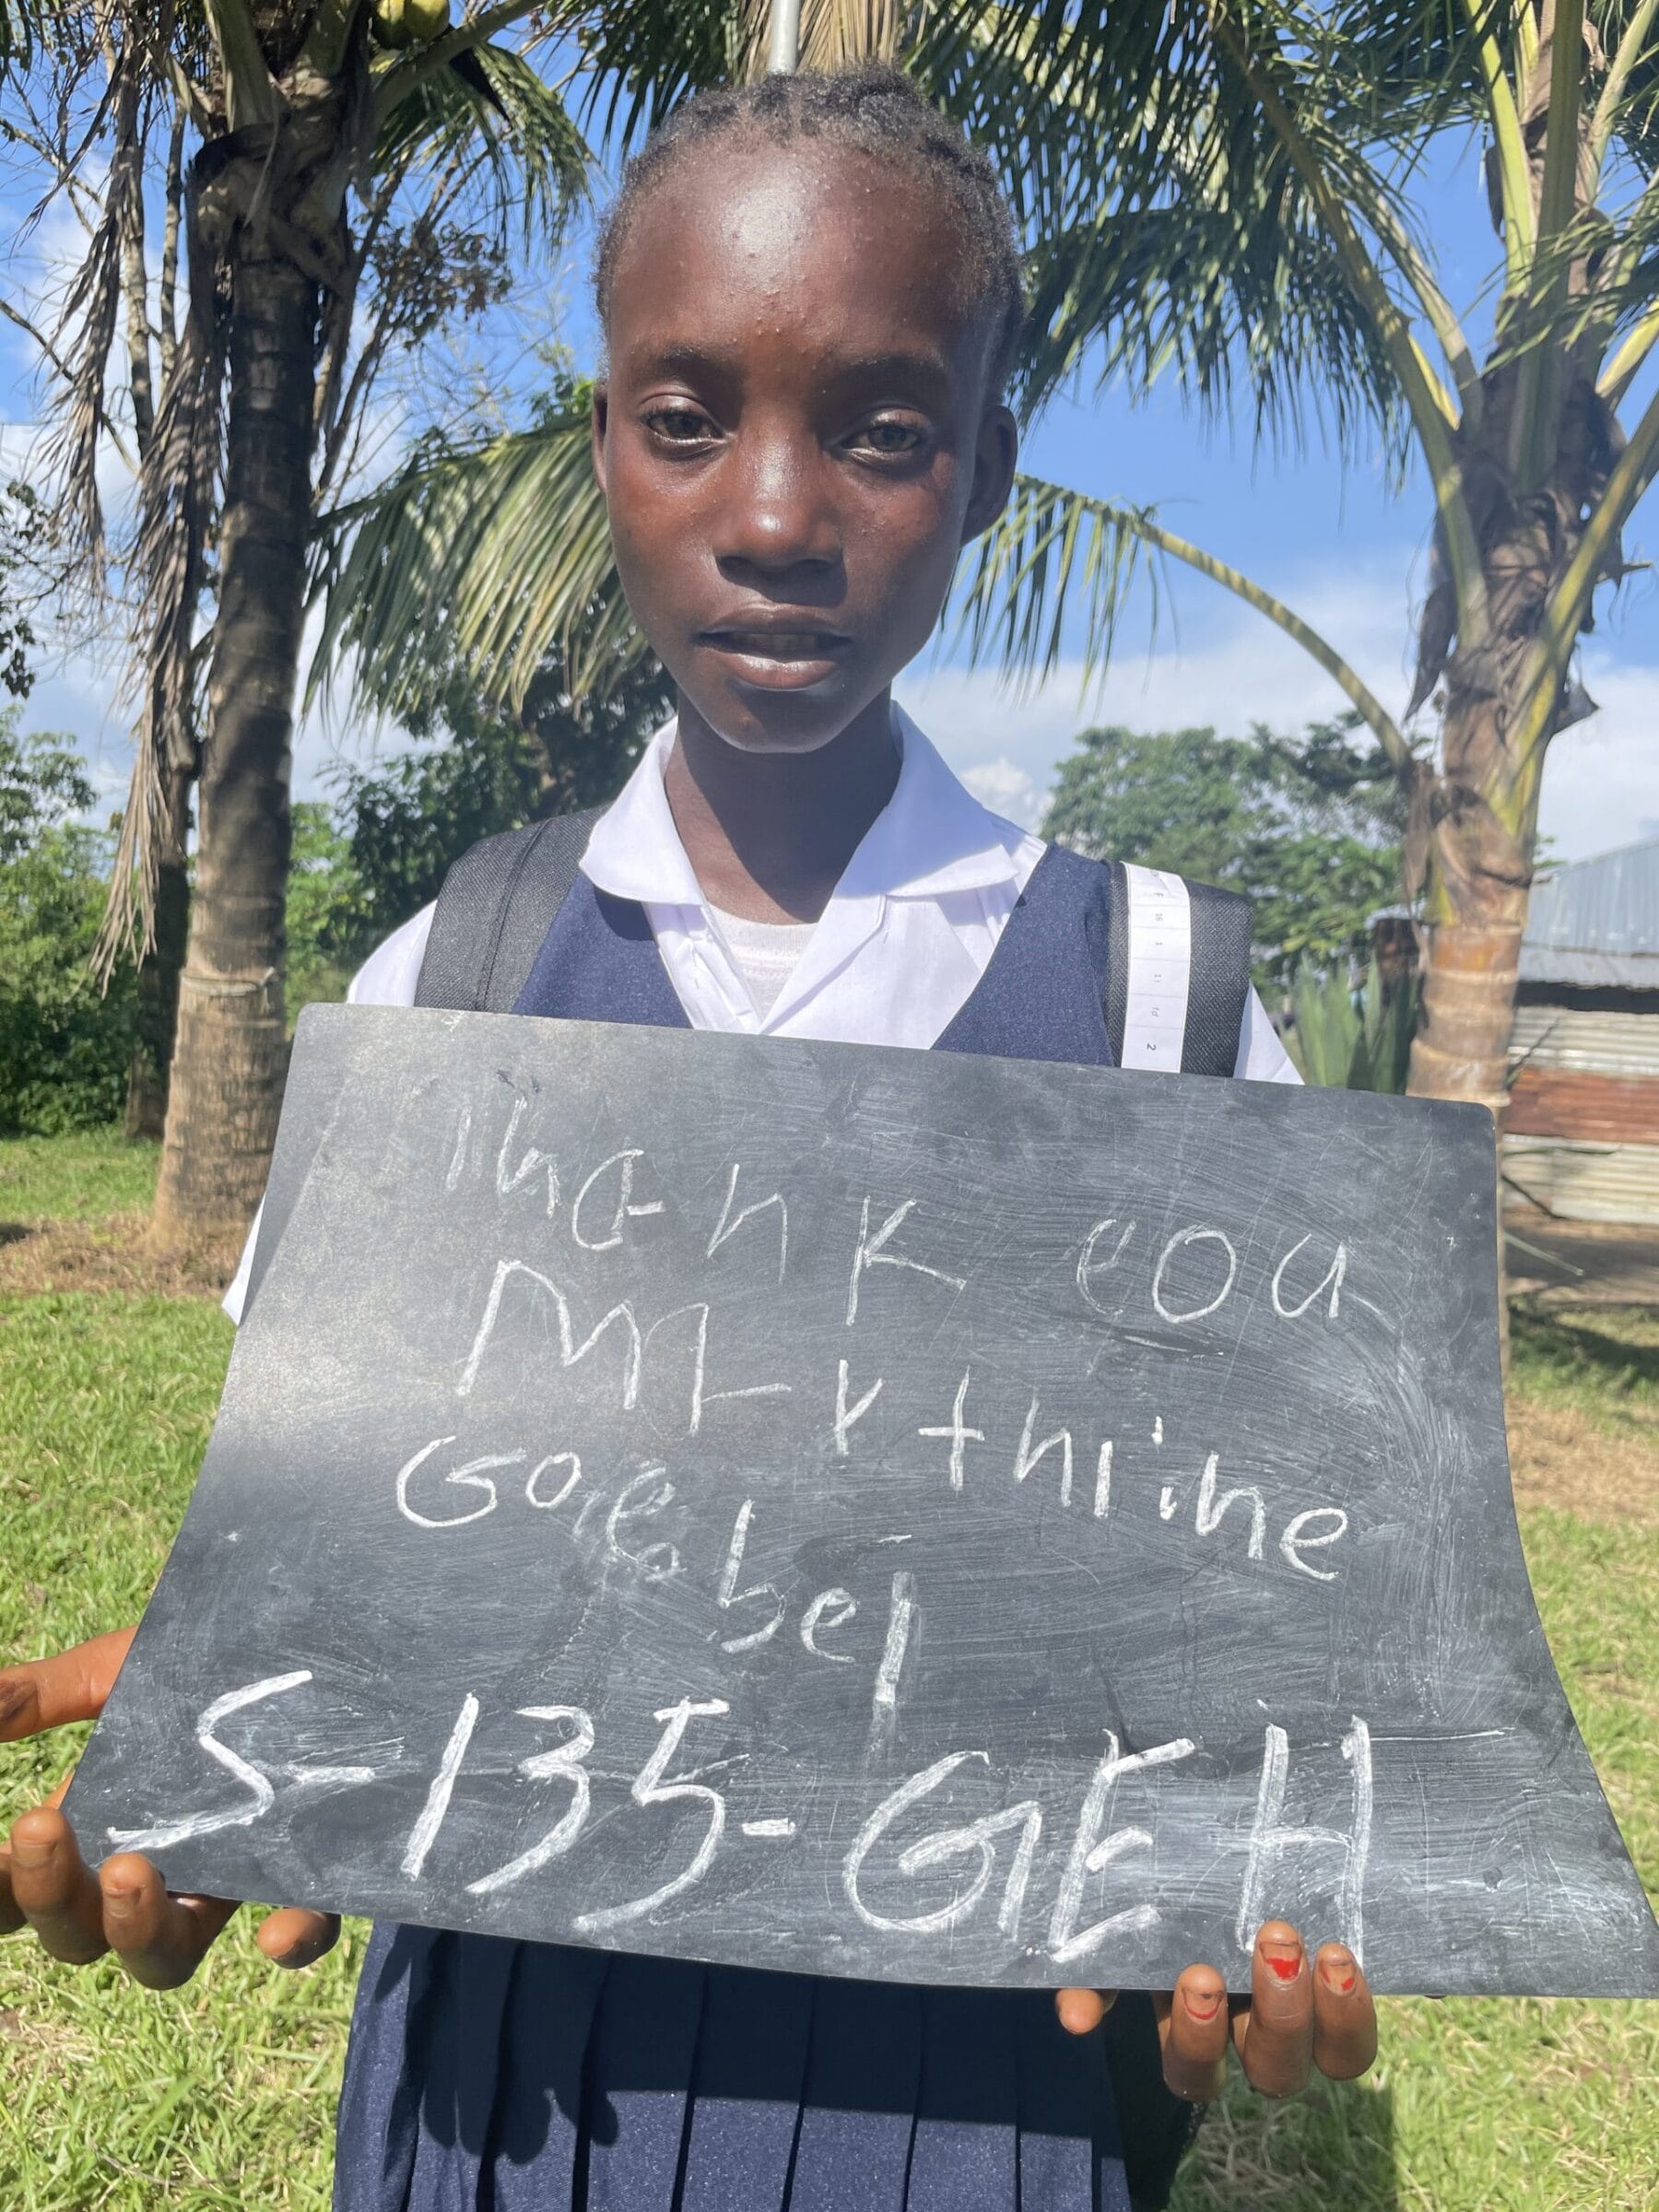 Thank eou
Mr kthrine
Goebel
S-135-GEH